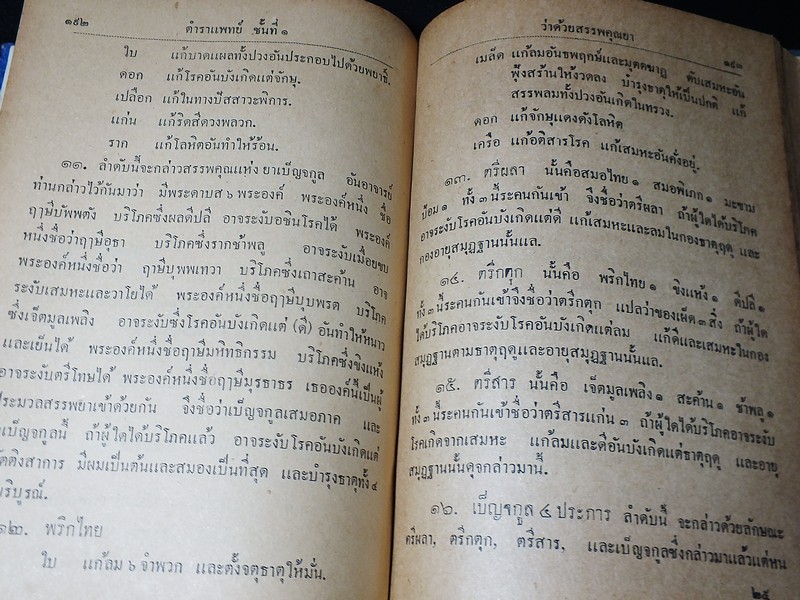 ๑๙๒ ตำราแพทย์ ชั้นที่ ๑
ใบ แก้บาดแผลทั้งปวงอันประกอบไปด้วยพยาธิ์.
ดอก แก้โรคอันบังเกิดแต่จักษุ.
เปลือก แก้ในทางปัสสาวะพิการ.
แก่น แก้ริดสีดวงพลวก.
ราก แก้โลหิตอันทำให้ร้อน.
๑๑. ลำดับนี้จะกล่าวสรรพคุณแห่ง ยาเบ็ญจกูล อันอาจารย์
ท่านกล่าวไว้กันมาว่า มีพระดาบส ๖ พระองค์ พระองค์หนึ่ง ชื่อ
ฤาษีบัพพตัง บริโภคซึ่งผลดีปลี อาจระงับอชินโรคได้ พระองค์
หนึ่งชื่อว่าฤาษีอุธา บริโภคซึ่งรากช้าพลู อาจระงับเมื่อยขบ
พระองค์หนึ่งชื่อว่า ฤาษีบุพเทวา บริโภคซึ่งเถาสะค้าน อาจ
ระงับเสมหะและวาโยได้ พระองค์หนึ่งชื่อฤาษีบุบพรต บริโภค
ซึ่งเจ็ตมูลเพลิง อาจระงับซึ่งโรคอันบังเกิดแต่ (ดี) อันทำให้หนาว
และเย็นได้ พระองค์หนึ่งชื่อฤาษีมหิทธิกรรม บริโภคซึ่งขิงแห้ง
อาจระงับตรีโทษได้ พระองค์หนึ่งชื่อฤาษีมุรธาธร เธอองค์นี้เป็นผู้
ประมวลสรรพยาเข้าด้วยกัน จึงชื่อว่าเบ็ญจกูลเสมอภาค และ
เบ็ญจกูลนี้ ถ้าผู้ใดได้บริโภคแล้ว อาจระงับโรคอันบังเกิดแต่
ัตติงสาการ มีผมเป็นต้นและสมองเป็นที่สุด และบำรุงธาตุทั้ง ๔
ริบูรณ์.
๑๒. พริกไทย
ใบ แก้ลม ๖ จำพวก และตั้งจตุธาตุให้มั่น.
ว่าด้วยสรรพคุณยา ๑๙๓
เมล็ด แก้ลมอันธพฤกษ์และมุตตฆาฏ ดับเสมหะอัน
ฟุ้งสร้านให้งวดลง บำรุงธาตุให้เป็นปกติ แก้
สรรพลมทั้งปวงอันเกิดในทรวง.
ดอก แก้จักษุแดงดังโลหิต
เครือ แก้อติสารโรค แก้เสมหะอันคั่งอยู่.
๑๓. ตรีผลา นั้นคือสมอไทย ๑ สมอพิเภก ๑ มะขาม
ป้อม ๑ ทั้ง ๓ นี้ระคนกันเข้า จึงชื่อว่าตรีผลา ถ้าผู้ใดได้บริโภค
อาจระงับโรคอันบังเกิดแต่ดี แก้เสมหะและลมในกองธาตุฤดู และ
กองอายุสมุฏฐานนั้นแล.
๑๔. ตรีกตุก นั้นคือ พริกไทย ๑ ขิงแห้ง ๑ ดีปลี ๑
ทั้ง ๓ นี้ระคนกันเข้าจึงชื่อว่าตรีกตุก แปลว่าของเผ็ด ๓ สิ่ง ถ้าผู้ใด
ได้บริโภคอาจระงับโรคอันบังเกิดแต่ลม แก้ดีและเสมหะในกอง
สมุฏฐานตามธาตุฤดูและอายุสมุฏฐานนั้นแล.
๑๕. ตรีสาร นั้นคือ เจ็ตมูลเพลิง ๑ สะค้าน ๑ ช้าพลู ๑
ทั้ง ๓ นี้ระคนกันเข้าชื่อว่าตรีสารแก่น ๓ ถ้าผู้ใดได้บริโภคอาจระงับ
โรคเกิดจากเสมหะ แก้ลมและดีอันบังเกิดแต่ธาตุฤดู และอายุ
สมุฏฐานนั้นดุจกล่าวมานี้.
๑๖. เบ็ญจกูล ๔ ประการ ลำดับนี้ จะกล่าวด้วยลักษณะ
ตรีผลา, ตรีกตุก, ตรีสาร, และเบ็ญจกูลซึ่งกล่าวมาแล้วแต่หน
๒๕